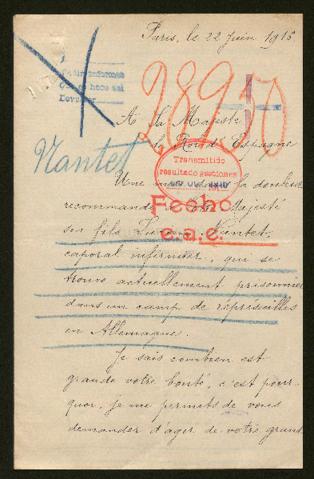 Paris, le 22 Juin 1916
28950
A Sa Majesté
le Roi d'Espagne
Nantet
Transmitido
resultado gestiones
Fecho
e.a.e.
Une
recommande Votre Majesté
son fils Nantet,
caporal infirmier, qui se
trouve actuellement prisonnier
dans un camp de représailles
en Allemagne.
Je sais combien est
grande votre bonté, c'est pour-
quoi, je me permets de vous
demander d'
de votre grand